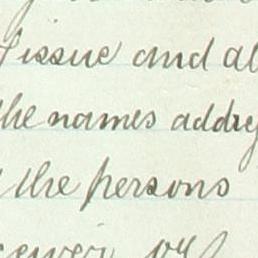 Tissue and al
the names addre
the persons